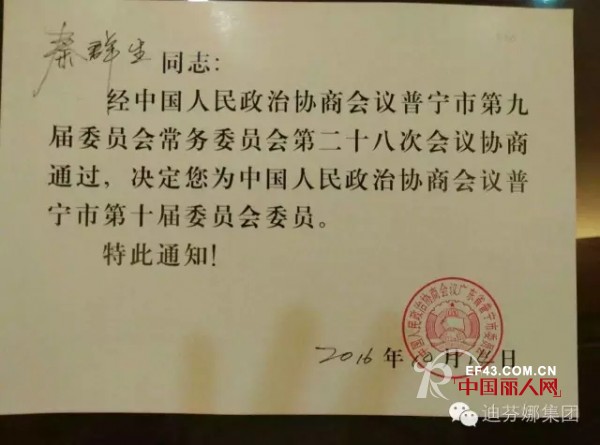 秦群生 同志：
经中国人民政治协商会议普宁市第九
届委员会常务委员会第二十八次会议协商
通过，决定您为中国人民政治协商会议普
宁市第十届委员会委员。
特此通知！
中国人民政治协商会议广东省普宁市委员会
2016 年 10 月 日
EF43.COM.CN
中国丽人网
迪芬娜集团